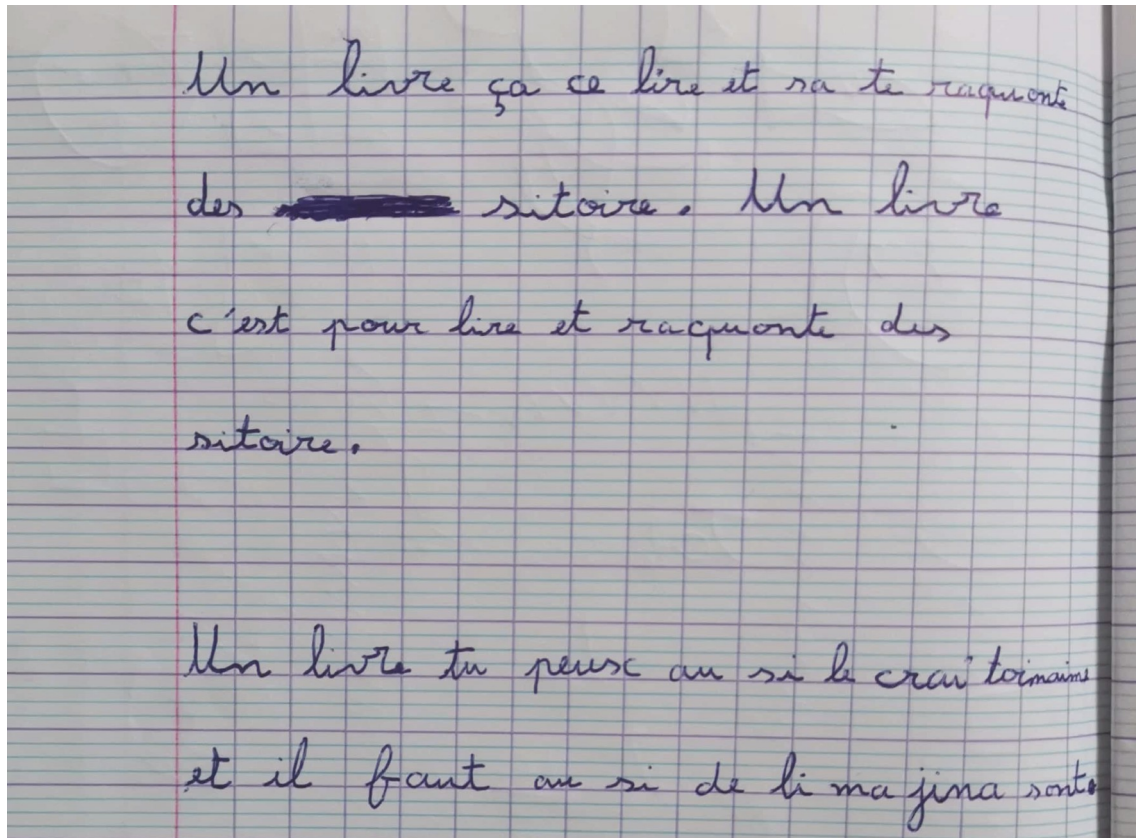 Un livre ça ce lire et sa te raquonte
des sitoire. Un livre
c'est pour lire et raquonte des
sitoire.
Un livre tu peux au si le crai toimaime
et il faut au si de li ma jina sont.